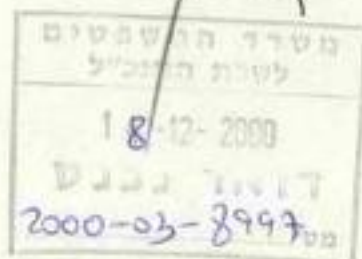 משרד המשפטים
לשכת המנכ"ל
18-12-2000
דואר נכנס
מס 2000-03-8997